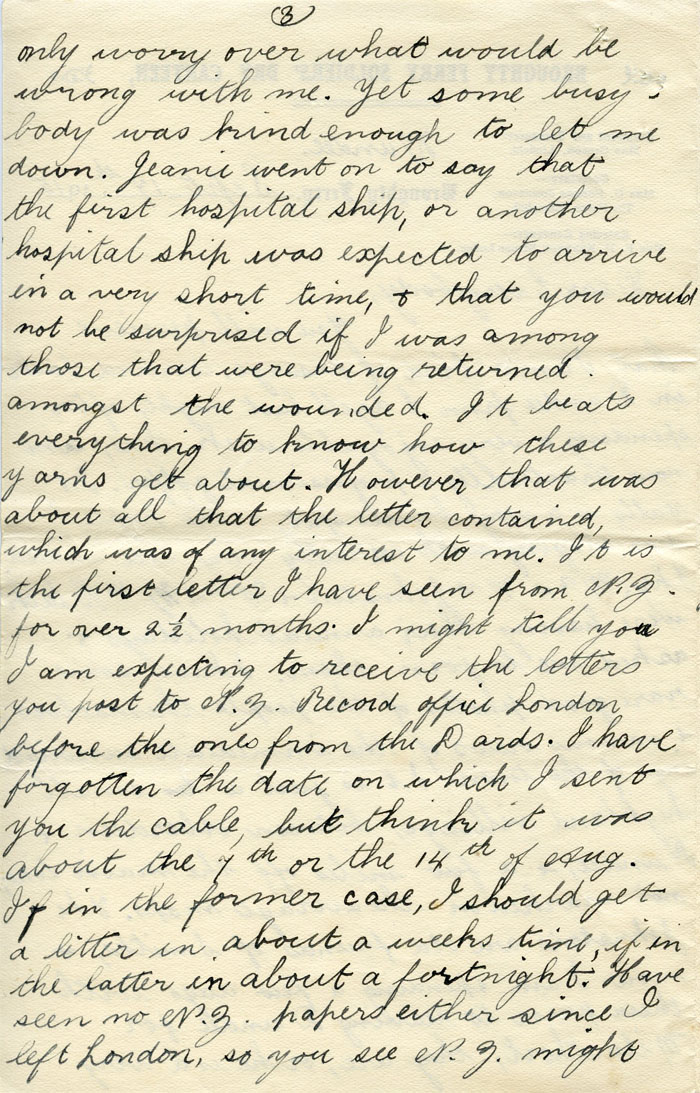 (3)
only worry over what would be
wrong with me. Yet some busy-
body was kind enough to let me
down. Jeanie went on to say that
the first hospital ship, or another
hospital ship was expected to arrive
in a very short time, & that you would
not be surprised if I was among
those that were being returned.
amongst the wounded. It beats
everything to know how these
yarns get about. However that was
about all that the letter contained,
which was of any interest to me. It is
the first letter I have seen from N.Z.
for over 2½ months. I might tell you
I am expecting to receive the letters
you post to N.Z. Record office London
before the ones from the Dards. I have
forgotten the date on which I sent
you the cable, but think it was
about the 7th or the 14th of Aug.
If in the former case, I should get
a litter in about a weeks time, if in
the latter in about a fortnight. Have
seen no N.Z. papers either since I
left London, so you see N.Z. might